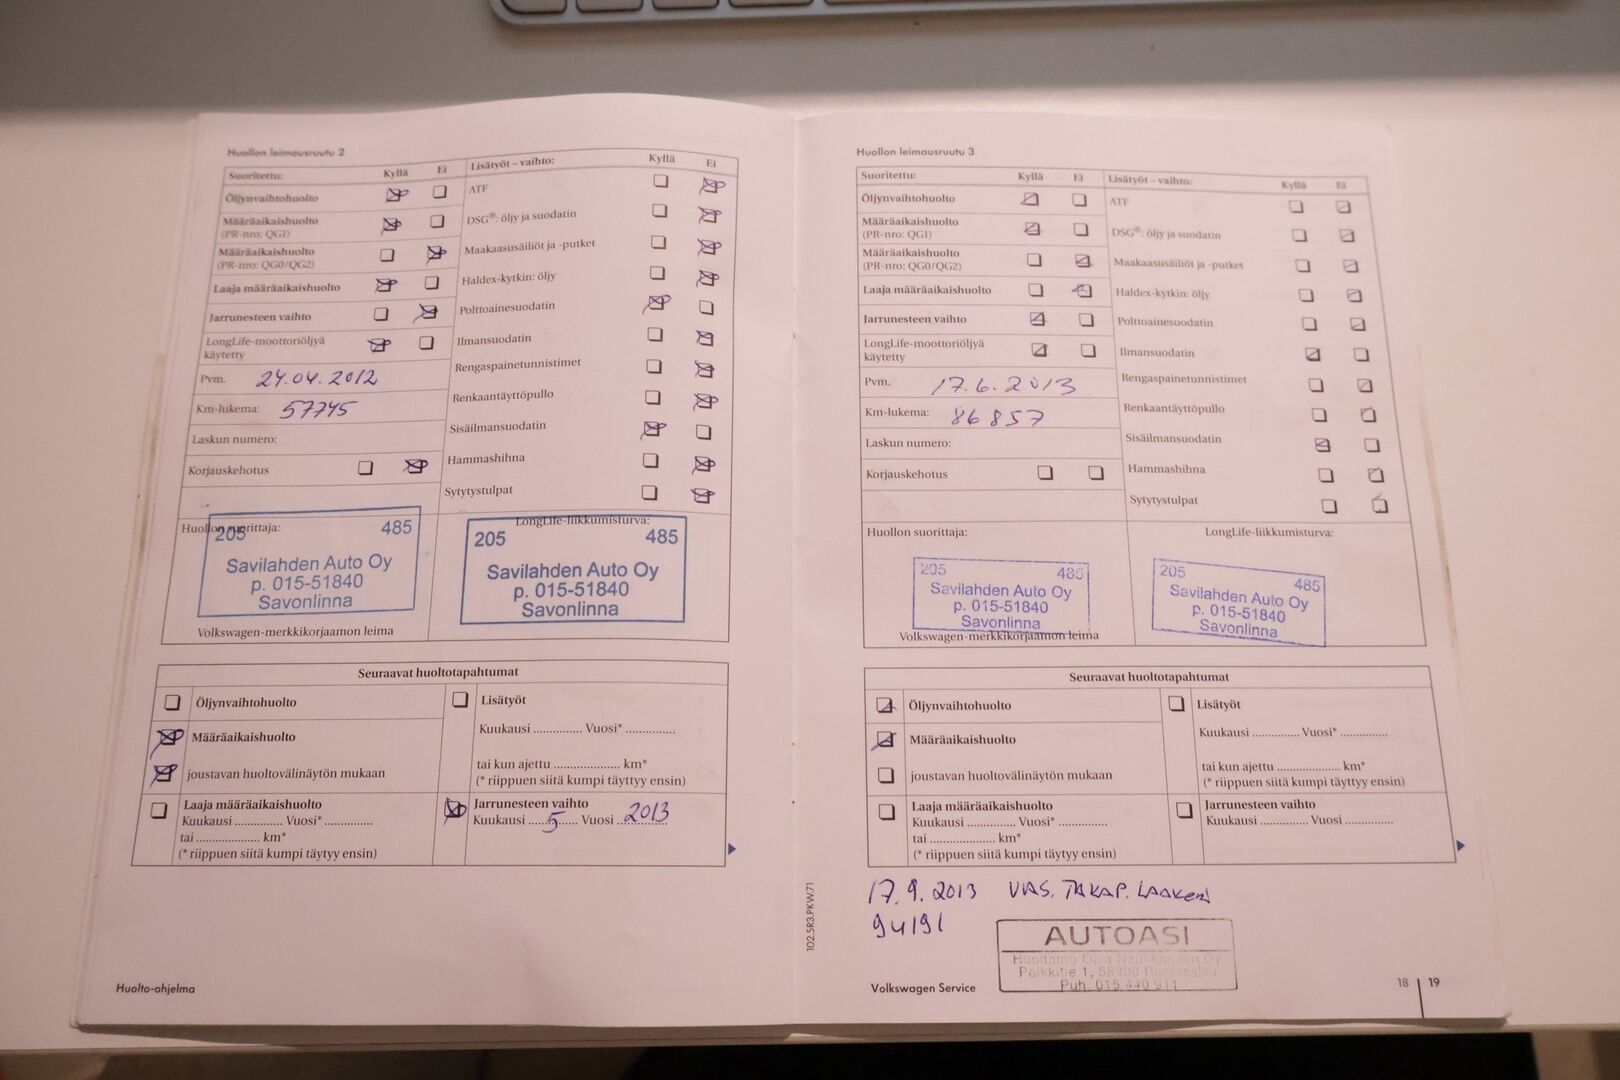 Huollon leimausruutu 2
Suoritettu: Kyllä Ei
Öljynvaihtohuolto
Määräaikaishuolto
(PR-nro: QG1)
Määräaikaishuolto
(PR-nro: QG0/QG2)
Laaja määräaikaishuolto
Jarrunesteen vaihto
LongLife-moottoriöljyä
käytetty
Pvm. 24.04.2012
Km-lukema: 57745
Laskun numero:
Korjauskehotus
Lisätyöt – vaihto: Kyllä Ei
ATF
DSG®: öljy ja suodatin
Maakaasusäiliöt ja -putket
Haldex-kytkin: öljy
Polttoainesuodatin
Ilmansuodatin
Rengaspainetunnistimet
Renkaantäyttöpullo
Sisäilmansuodatin
Hammashihna
Sytytystulpat
Huollon suorittaja:
205 485
Savilahden Auto Oy
p. 015-51840
Savonlinna
Volkswagen-merkkikorjaamon leima
LongLife-liikkumisturva:
205 485
Savilahden Auto Oy
p. 015-51840
Savonlinna
Seuraavat huoltotapahtumat
Öljynvaihtohuolto
Määräaikaishuolto
joustavan huoltovälinäytön mukaan
Lisätyöt
Kuukausi ............... Vuosi* ...............
tai kun ajettu .................... km*
(* riippuen siitä kumpi täyttyy ensin)
Laaja määräaikaishuolto
Kuukausi ............... Vuosi* ...............
tai .................... km*
(* riippuen siitä kumpi täytyy ensin)
Jarrunesteen vaihto
Kuukausi ..... 5 ..... Vuosi .. 2013
Huolto-ohjelma
102.5R3.PKW.71
Huollon leimausruutu 3
Suoritettu: Kyllä Ei
Öljynvaihtohuolto
Määräaikaishuolto
(PR-nro: QG1)
Määräaikaishuolto
(PR-nro: QG0/QG2)
Laaja määräaikaishuolto
Jarrunesteen vaihto
LongLife-moottoriöljyä
käytetty
Pvm. 17.6.2013
Km-lukema: 86857
Laskun numero:
Korjauskehotus
Lisätyöt – vaihto: Kyllä Ei
ATF
DSG®: öljy ja suodatin
Maakaasusäiliöt ja -putket
Haldex-kytkin: öljy
Polttoainesuodatin
Ilmansuodatin
Rengaspainetunnistimet
Renkaantäyttöpullo
Sisäilmansuodatin
Hammashihna
Sytytystulpat
Huollon suorittaja:
205 485
Savilahden Auto Oy
p. 015-51840
Savonlinna
Volkswagen-merkkikorjaamon leima
LongLife-liikkumisturva:
205 485
Savilahden Auto Oy
p. 015-51840
Savonlinna
Seuraavat huoltotapahtumat
Öljynvaihtohuolto
Määräaikaishuolto
joustavan huoltovälinäytön mukaan
Lisätyöt
Kuukausi ............... Vuosi* ...............
tai kun ajettu .................... km*
(* riippuen siitä kumpi täyttyy ensin)
Laaja määräaikaishuolto
Kuukausi ............... Vuosi* ...............
tai .................... km*
(* riippuen siitä kumpi täytyy ensin)
Jarrunesteen vaihto
Kuukausi ............... Vuosi ...............
17.9.2013 VAS. TAKAP. LAAKERI
94191
AUTOASI
Huoltamo Oiva
Poikkitie 1, 58900 Rantasalmi
Puh. 015 440 911
Volkswagen Service
18 19